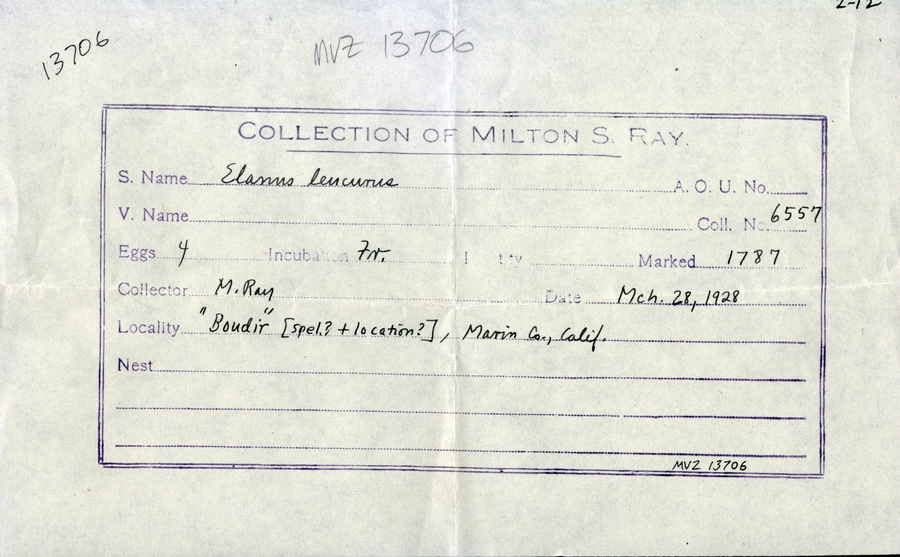 2-12
13706
MVZ 13706
COLLECTION OF MILTON S. RAY.
S. Name Elanus leucurus A. O. U. No.
V. Name Coll. No. 6557
Eggs 4 Incubation Fr. I t ty Marked 1787
Collector M. Ray Date Mch. 28, 1928
Locality "Boudir" [spel.? + location?], Marin Co., Calif.
Nest
MVZ 13706